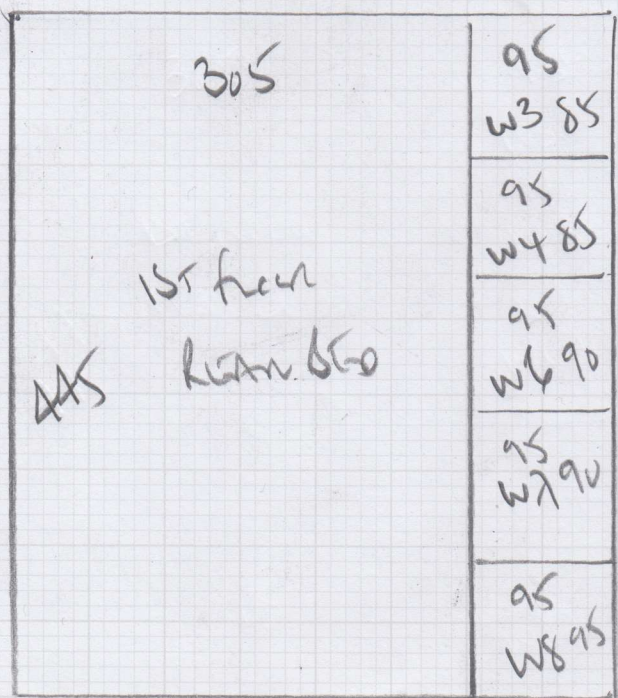 305
1ST FLOOR
REAR BED
445
95
W3 85
95
W4 85
95
W6 90
95
W7 90
95
W8 95